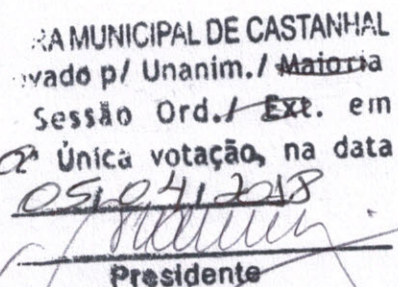 RA MUNICIPAL DE CASTANHAL
vado p/ Unanim./ Maioria
Sessão Ord./ Ext. em
2ª Única votação, na data
05/04/2018
Presidente